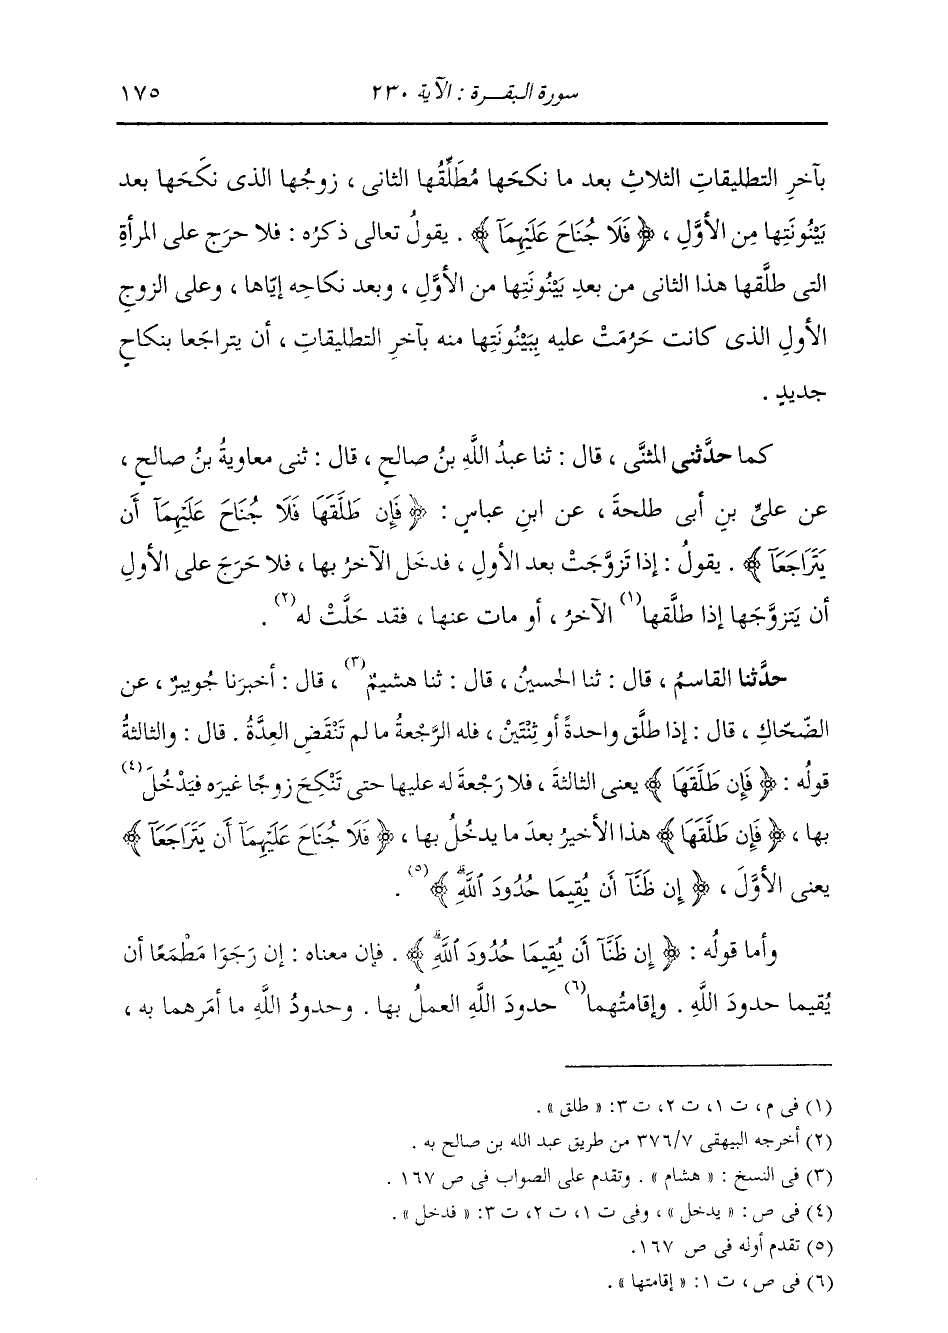 سورة البقرة : الآية ٢٣٠ ١٧٥
بآخرِ التطليقاتِ الثلاثِ بعد ما نكَحها مُطَلِّقُها الثانى ، زوجُها الذى نكَحَها بعد
بَيْنُونَتِها مِن الأوَّلِ ، ﴿ فَلَا جُنَاحَ عَلَيْهِمَآ ﴾ . يقولُ تعالى ذكرُه : فلا حرَج على المرأةِ
التى طلَّقها هذا الثانى من بعدِ بَيْنُونَتِها من الأوَّلِ ، وبعد نكاحِه إيّاها ، وعلى الزوجِ
الأولِ الذى كانت حَرُمَتْ عليه بِبَيْنُونَتِها منه بآخرِ التطليقاتِ ، أن يتراجَعا بنكاحٍ
جديدٍ .
كما حدَّثنى المثنَّى ، قال : ثنا عبدُ اللَّهِ بنُ صالحٍ ، قال : ثنى معاويةُ بنُ صالحٍ ،
عن علىِّ بنِ أبى طلحةَ ، عن ابنِ عباسٍ : ﴿ فَإِن طَلَّقَهَا فَلَا جُنَاحَ عَلَيْهِمَآ أَن
يَتَرَاجَعَآ ﴾ . يقولُ : إذا تَزوَّجَتْ بعد الأولِ ، فدخَل الآخرُ بها ، فلا حَرَجَ على الأولِ
أن يَتزوَّجَها إذا طلَّقها(١) الآخرُ ، أو مات عنها ، فقد حَلَّتْ له(٢) .
حدَّثنا القاسمُ ، قال : ثنا الحسينُ ، قال : ثنا هشيمٌ(٣) ، قال : أخبرَنا جُويبرٌ ، عن
الضّحّاكِ ، قال : إذا طلَّق واحدةً أو ثِنْتَيْنِ ، فله الرَّجْعةُ ما لم تَنْقَضِ العِدَّةُ . قال : والثالثةُ
قولُه : ﴿ فَإِن طَلَّقَهَا ﴾ يعنى الثالثةَ ، فلا رَجْعةَ له عليها حتى تَنْكِحَ زوجًا غيرَه فيَدْخُلَ(٤)
بها ، ﴿ فَإِن طَلَّقَهَا ﴾ هذا الأخيرُ بعدَ ما يدخُلُ بها ، ﴿ فَلَا جُنَاحَ عَلَيْهِمَآ أَن يَتَرَاجَعَآ ﴾
يعنى الأوَّلَ ، ﴿ إِن ظَنَّآ أَن يُقِيمَا حُدُودَ ٱللَّهِۗ ﴾(٥) .
وأما قولُه : ﴿ إِن ظَنَّآ أَن يُقِيمَا حُدُودَ ٱللَّهِۗ ﴾ . فإن معناه : إن رَجَوَا مَطْمَعًا أن
يُقيما حدودَ اللَّهِ . وإقامتُهما(٦) حدودَ اللَّهِ العملُ بها . وحدودُ اللَّهِ ما أمَرهما به ،
(١) فى م ، ت ١، ت ٢، ت ٣: « طلق » .
(٢) أخرجه البيهقى ٣٧٦/٧ من طريق عبد الله بن صالح به .
(٣) فى النسخ : « هشام » . وتقدم على الصواب فى ص ١٦٧ .
(٤) فى ص : « يدخل » ، وفى ت ١، ت ٢، ت ٣: « فدخل » .
(٥) تقدم أوله فى ص ١٦٧.
(٦) فى ص ، ت ١: « إقامتها » .